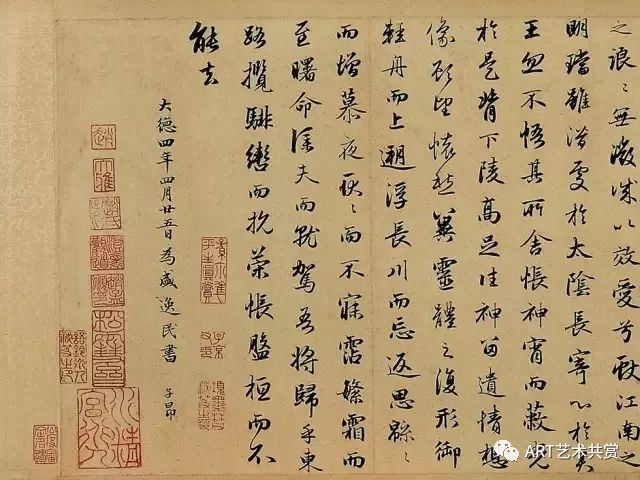 之浪〻無微誠以效愛兮獻江南之
明璫雖潛處於太陰長寄心於君
王忽不悟其所舍悵神宵而蔽光
於是背下陵高足往神留遺情想
像顧望懷愁冀靈體之復形御
輕舟而上遡浮長川而忘返思緜〻
而增慕夜耿〻而不寐霑繁霜而
至曙命僕夫而就駕吾將歸乎東
路攬騑轡而抗策悵盤桓而不
能去
大德四年四月廿五日為盛逸民書 子昂
大雅
松雪齋
ART艺术共赏